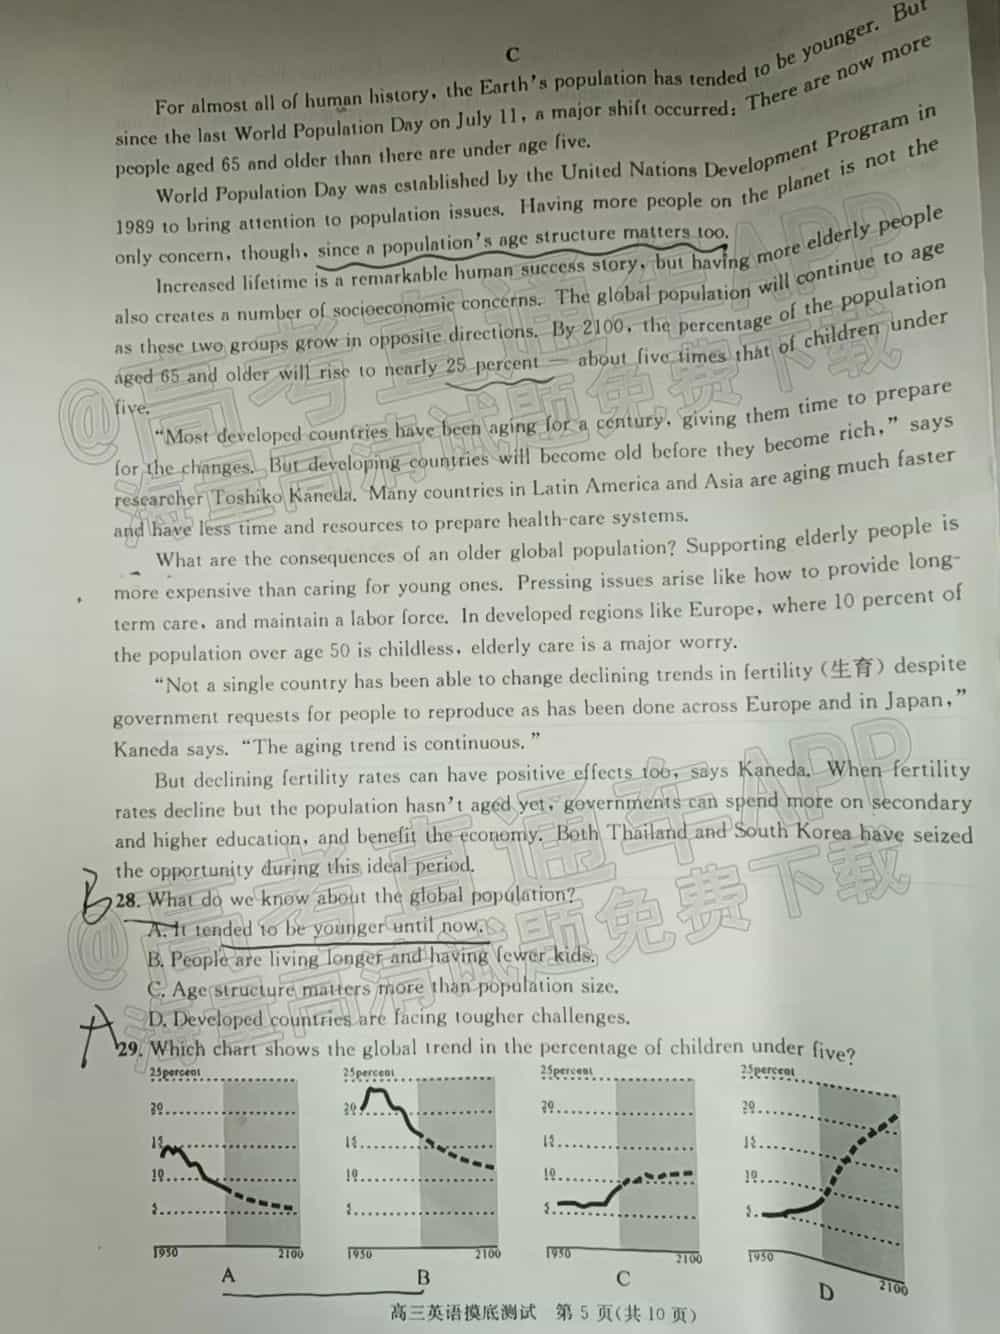 C
For almost all of human history, the Earth's population has tended to be younger. But
since the last World Population Day on July 11, a major shift occurred: There are now more
people aged 65 and older than there are under age five.
World Population Day was established by the United Nations Development Program in
1989 to bring attention to population issues. Having more people on the planet is not the
only concern, though, since a population's age structure matters too.
Increased lifetime is a remarkable human success story, but having more elderly people
also creates a number of socioeconomic concerns. The global population will continue to age
as these two groups grow in opposite directions. By 2100, the percentage of the population
aged 65 and older will rise to nearly 25 percent — about five times that of children under
five.
"Most developed countries have been aging for a century, giving them time to prepare
for the changes. But developing countries will become old before they become rich," says
researcher Toshiko Kaneda. Many countries in Latin America and Asia are aging much faster
and have less time and resources to prepare health-care systems.
What are the consequences of an older global population? Supporting elderly people is
more expensive than caring for young ones. Pressing issues arise like how to provide long-
term care, and maintain a labor force. In developed regions like Europe, where 10 percent of
the population over age 50 is childless, elderly care is a major worry.
"Not a single country has been able to change declining trends in fertility (生育) despite
government requests for people to reproduce as has been done across Europe and in Japan,"
Kaneda says. "The aging trend is continuous."
But declining fertility rates can have positive effects too, says Kaneda. When fertility
rates decline but the population hasn't aged yet, governments can spend more on secondary
and higher education, and benefit the economy. Both Thailand and South Korea have seized
the opportunity during this ideal period.
B
28. What do we know about the global population?
A. It tended to be younger until now.
B. People are living longer and having fewer kids.
C. Age structure matters more than population size.
D. Developed countries are facing tougher challenges.
A
29. Which chart shows the global trend in the percentage of children under five?
25percent 25percent 25percent 25percent
20 20 20 20
15 15 15 15
10 10 10 10
5 5 5 5
1950 2100 1950 2100 1950 2100 1950 2100
A B C D
高三英语摸底测试 第5页(共10页)
@高考直通车APP
海量高清试题免费下载
@高考直通车APP
海量高清试题免费下载